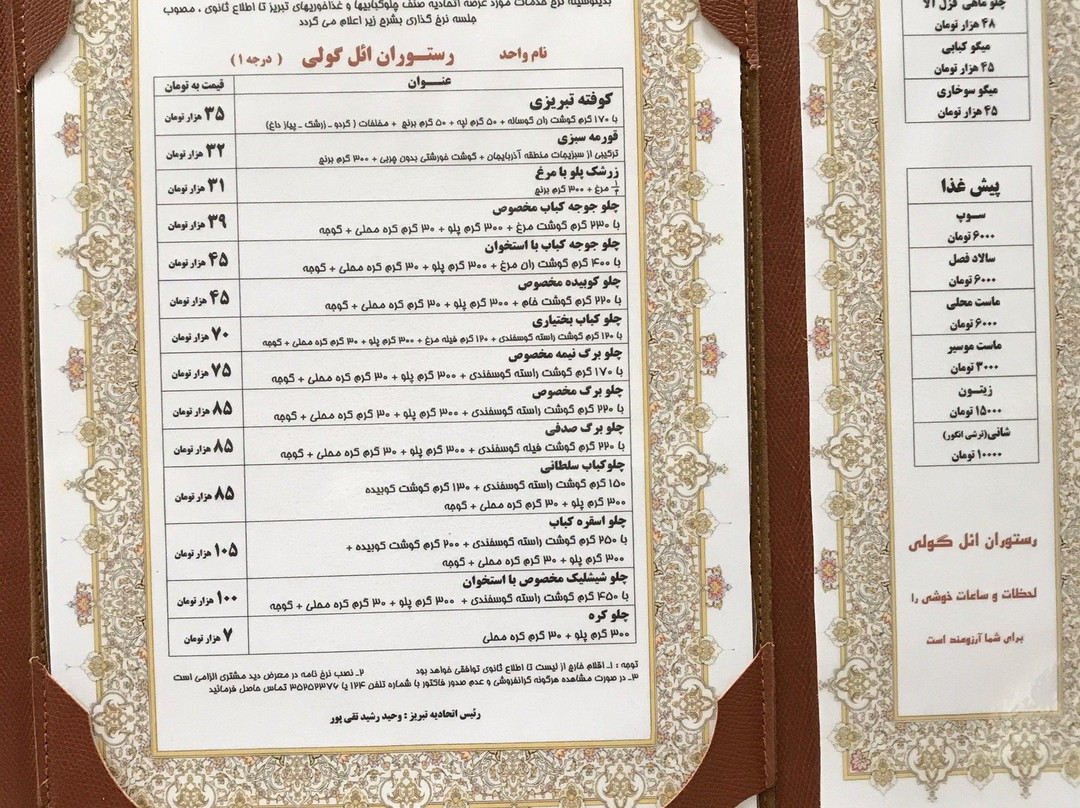 بدینوسیله نرخ خدمات مورد عرضه اتحادیه صنف چلوکبابیها و غذاخوریهای تبریز تا اطلاع ثانوی ، مصوب
جلسه نرخ گذاری بشرح زیر اعلام می گردد
نام واحد رستوران ائل گولی ( درجه ۱ )
عنوان قیمت به تومان
کوفته تبریزی
با ۱۷۰ گرم گوشت ران گوساله + ۵۰ گرم لپه + ۵۰ گرم برنج + مخلفات ( گردو ـ زرشک ـ پیاز داغ)
۳۵ هزار تومان
قورمه سبزی
ترکیبی از سبزیجات منطقه آذربایجان + گوشت خورشتی بدون چربی + ۳۰۰ گرم برنج
۳۲ هزار تومان
زرشک پلو با مرغ
مرغ + ۳۰۰ گرم برنج
۳۱ هزار تومان
چلو جوجه کباب مخصوص
با ۲۳۰ گرم گوشت مرغ + ۳۰۰ گرم پلو + ۳۰ گرم کره محلی + گوجه
۳۹ هزار تومان
چلو جوجه کباب با استخوان
با ۴۰۰ گرم گوشت ران مرغ + ۳۰۰ گرم پلو + ۳۰ گرم کره محلی + گوجه
۴۵ هزار تومان
چلو کوبیده مخصوص
با ۲۲۰ گرم گوشت خام + ۳۰۰ گرم پلو + ۳۰ گرم کره محلی + گوجه
۴۵ هزار تومان
چلو کباب بختیاری
با ۱۲۰ گرم گوشت راسته گوسفندی + ۱۲۰ گرم فیله مرغ + ۳۰۰ گرم پلو + ۳۰ گرم کره محلی + گوجه
۷۰ هزار تومان
چلو برگ نیمه مخصوص
با ۱۷۰ گرم گوشت راسته گوسفندی + ۳۰۰ گرم پلو + ۳۰ گرم کره محلی + گوجه
۷۵ هزار تومان
چلو برگ مخصوص
با ۲۲۰ گرم گوشت راسته گوسفندی + ۳۰۰ گرم پلو + ۳۰ گرم کره محلی + گوجه
۸۵ هزار تومان
چلو برگ صدفی
با ۲۲۰ گرم گوشت فیله گوسفندی + ۳۰۰ گرم پلو + ۳۰ گرم کره محلی + گوجه
۸۵ هزار تومان
چلوکباب سلطانی
۱۵۰ گرم گوشت راسته گوسفندی + ۱۳۰ گرم گوشت کوبیده
۳۰۰ گرم پلو + ۳۰ گرم کره محلی + گوجه
۸۵ هزار تومان
چلو اسقره کباب
با ۲۵۰ گرم گوشت راسته گوسفندی + ۲۰۰ گرم گوشت کوبیده +
۳۰۰ گرم پلو + ۳۰ گرم کره محلی + گوجه
۱۰۵ هزار تومان
چلو شیشلیک مخصوص با استخوان
با ۴۵۰ گرم گوشت راسته گوسفندی + ۳۰۰ گرم پلو + ۳۰ گرم کره محلی + گوجه
۱۰۰ هزار تومان
چلو کره
۳۰۰ گرم پلو + ۳۰ گرم کره محلی
۷ هزار تومان
توجه : ۱ـ اقلام خارج از لیست تا اطلاع ثانوی توافقی خواهد بود ۲ـ نصب نرخ نامه در معرض دید مشتری الزامی است
۳ـ در صورت مشاهده هرگونه گرانفروشی و عدم صدور فاکتور با شماره تلفن ۱۲۴ یا ۳۵۲۵۲۳۷۶ تماس حاصل فرمائید
رئیس اتحادیه تبریز : وحید رشید تقی پور
چلو ماهی قزل آلا
۴۸ هزار تومان
میگو کبابی
۴۵ هزار تومان
میگو سوخاری
۴۵ هزار تومان
پیش غذا
سوپ
۶۰۰۰ تومان
سالاد فصل
۶۰۰۰ تومان
ماست محلی
۶۰۰۰ تومان
ماست موسیر
۳۰۰۰ تومان
زیتون
۱۵۰۰۰ تومان
شانی(ترشی انگور)
۱۰۰۰۰ تومان
رستوران ائل گولی
لحظات و ساعات خوشی را
برای شما آرزومند است